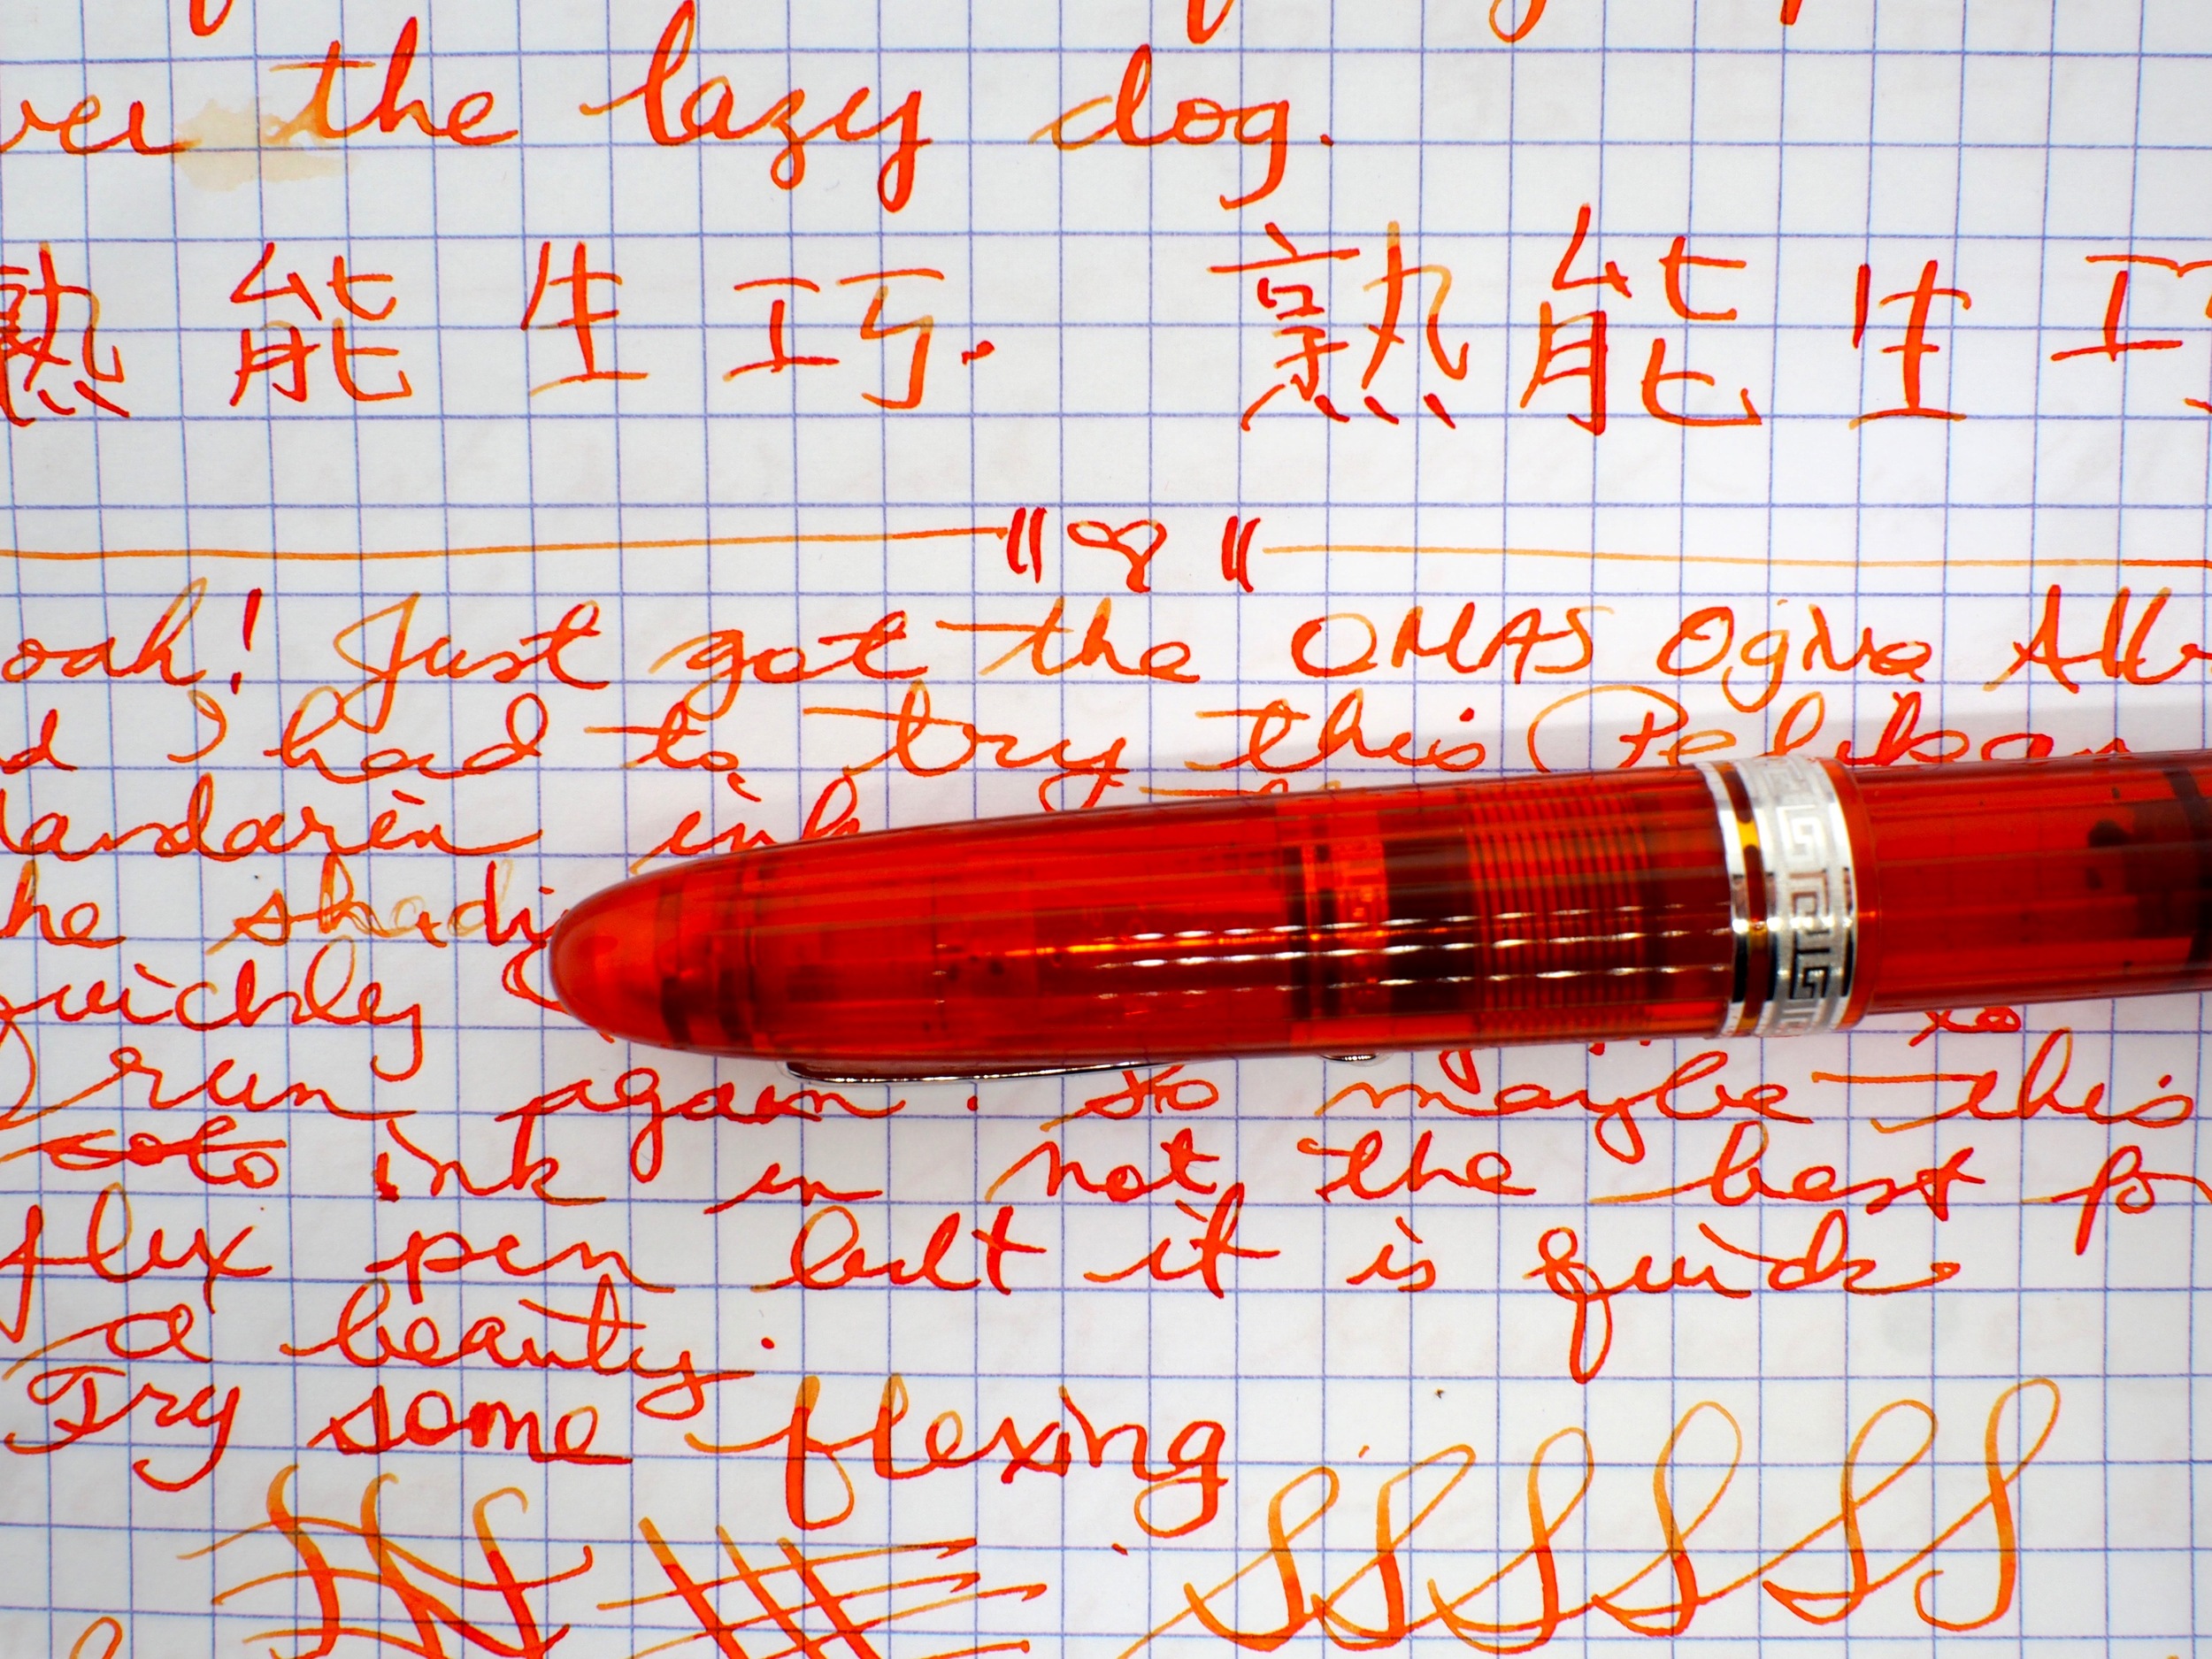 ver the lazy dog.
熟能生巧. 熟能生巧
oah! Just got the OMAS Ogiva Alb
d I had to try this Pelikan
andarin ink
he shadi
quickly
run again. So maybe this
ink in not the best fo
flex pen but it is quick
a beauty.
Try some flexing